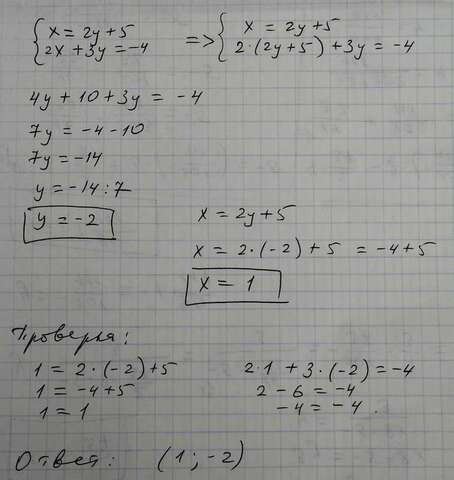 { x = 2y + 5 => { x = 2y + 5
2x + 3y = -4 2·(2y+5) + 3y = -4
4y + 10 + 3y = -4
7y = -4 - 10
7y = -14
y = -14 : 7
y = -2
x = 2y + 5
x = 2·(-2) + 5 = -4 + 5
x = 1
Проверка:
1 = 2·(-2) + 5
1 = -4 + 5
1 = 1
2·1 + 3·(-2) = -4
2 - 6 = -4
-4 = -4.
Ответ: (1; -2)